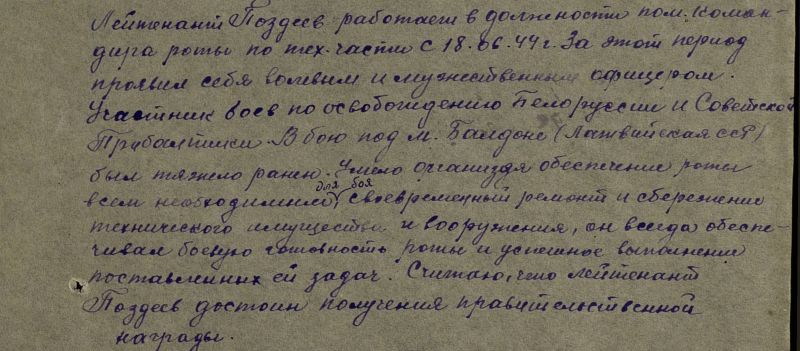 Лейтенант Поздеев работает в должности пом. коман-
дира роты по тех. части с 18.06.44 г. За этот период
проявил себя волевым и мужественным офицером.
Участник боев по освобождению Белоруссии и Советской
Прибалтики. В бою под м. Балдоне (Латвийская ССР)
был тяжело ранен. Умело организуя обеспечение роты
всем необходимым для боя своевременный ремонт и сбережение
технического имущества и вооружения, он всегда обеспе-
чивал боевую готовность роты и успешное выполнение
поставленных ей задач. Считаю, что лейтенант
Поздеев достоин получения правительственной
награды.